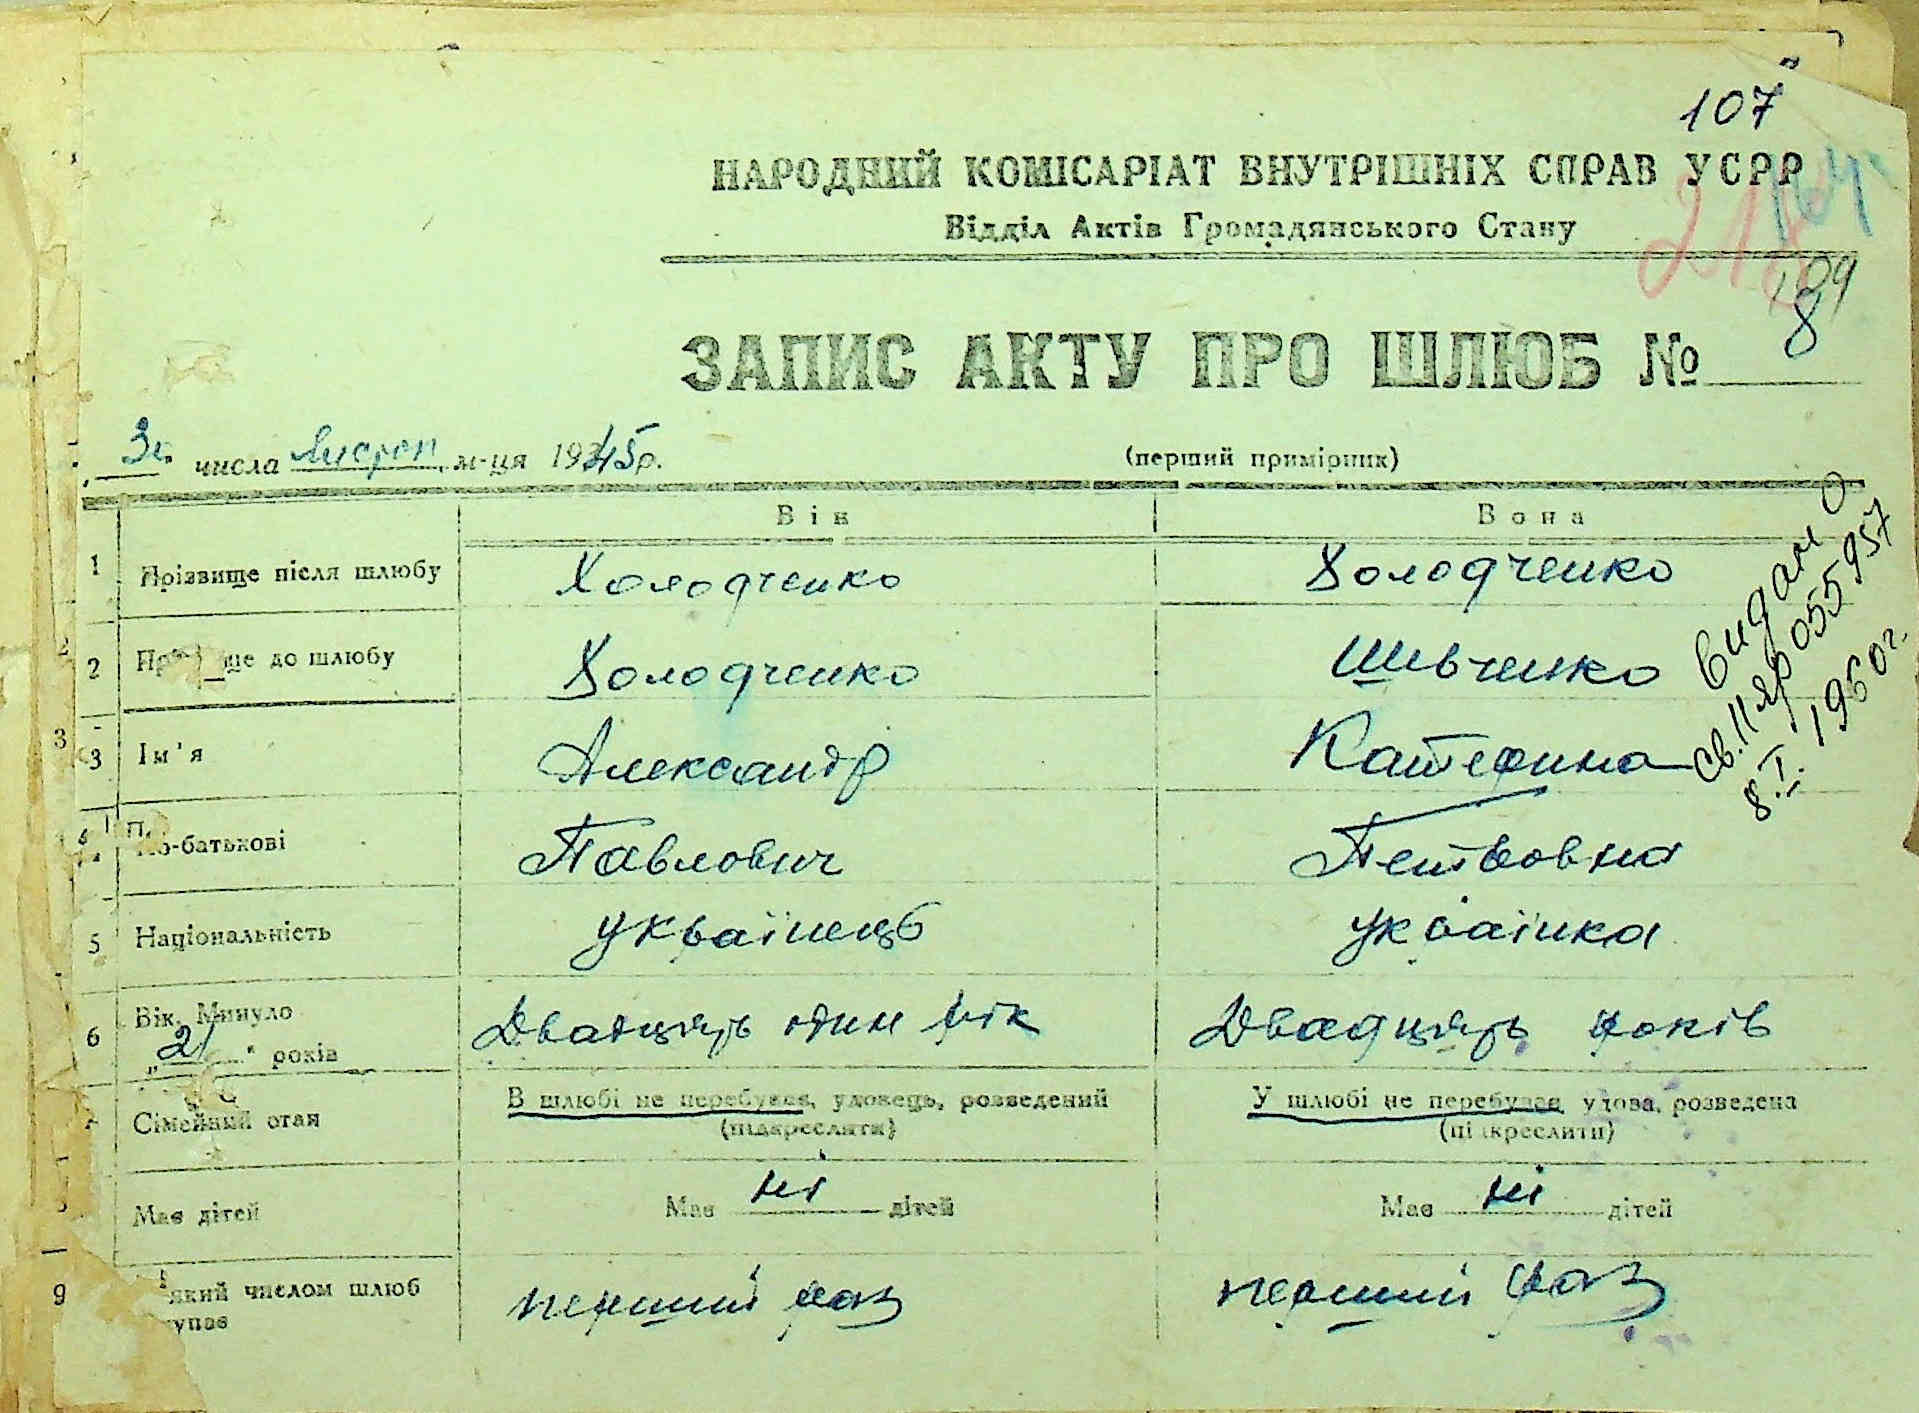 107
НАРОДНИЙ КОМІСАРІАТ ВНУТРІШНІХ СПРАВ УСРР
164
Відділ Актів Громадянського Стану
218
109
ЗАПИС АКТУ ПРО ШЛЮБ № 8
3го числа Листоп м-ця 1945р.
(перший примірник)
Він Вона
1 Прізвище після шлюбу Холодченко Холодченко
2 Прізвище до шлюбу Холодченко Шевченко
3 Ім'я Александр Катерина
4 По-батькові Павлович Петровна
5 Національність українець українка
6 Вік. Минуло Двадцять один рік Двадцять років
„21" років
Сімейний стан В шлюбі не перебував, удовець, розведений У шлюбі не перебував, удова, розведена
(підкреслити) (підкреслити)
Має дітей Має ні дітей Має ні дітей
9 який числом шлюб перший раз перший раз
упає
видано
св. II яр 055957
8.I. 1960г.